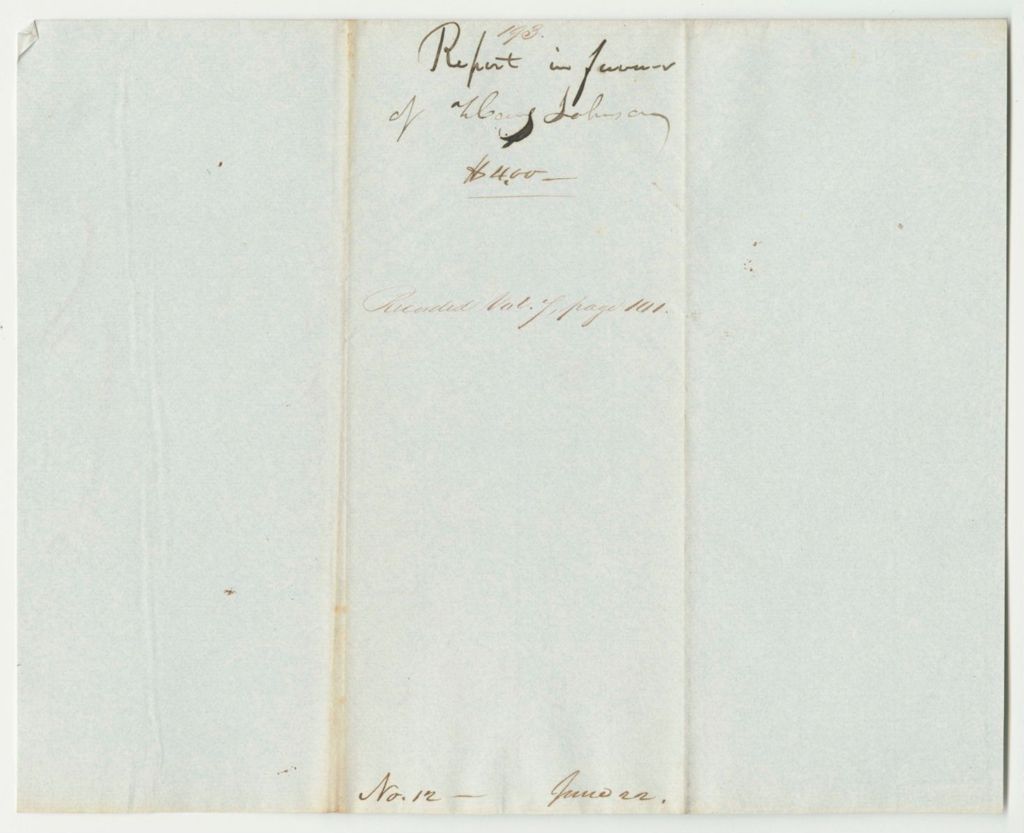 173.
Report in favour
of Johnson
$4,00—
Recorded Vol. 7, page 101.
No. 12 — June 22.